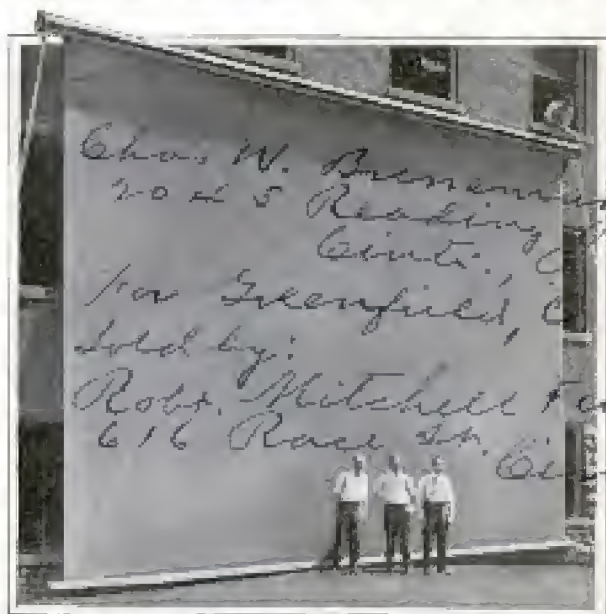 Chas W.
2045 Reading
Cinti.,
for Greenfield,
Sold by:
Robt. Mitchell
616 Race St.